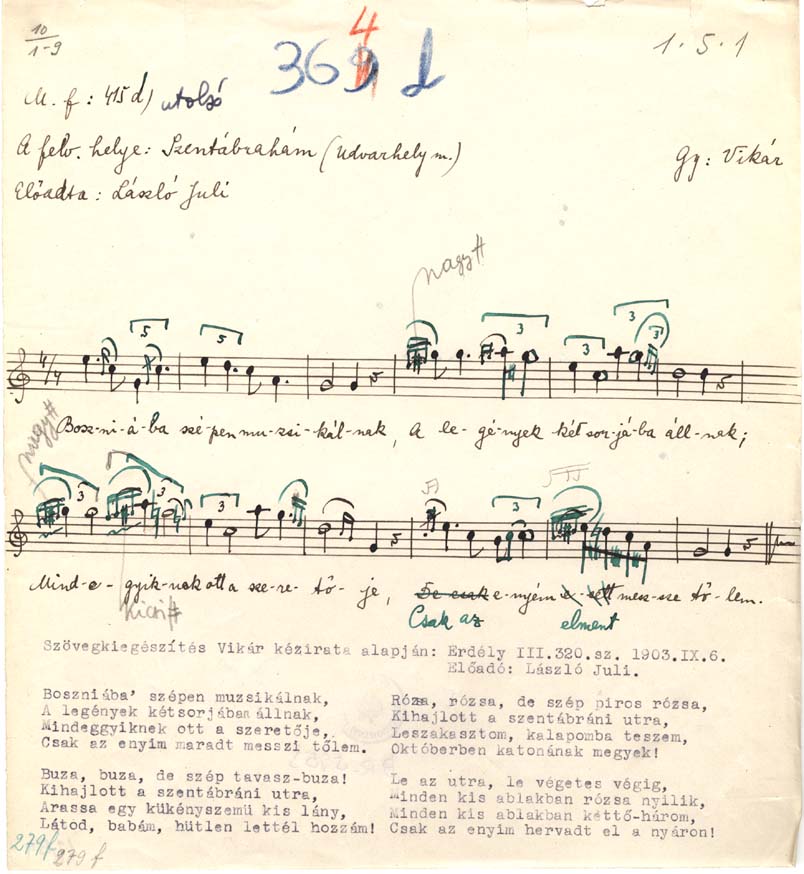 10
1-9
364 d
1.5.1
M. f: 415 d) utolsó
A felv. helye: Szentábrahám (Udvarhely m.)
Gy: Vikár
Előadta: László Juli
nagy #
5
5
3
3
3
3
4/4
nagy #
Bosz-ni-á-ba szé-pen mu-zsi-kál-nak, A le-gé-nyek két sor-já-ba áll-nak;
3
3
3
3
Mind-e-gyik-nek ott a sze-re-tő-je, De csak e-nyém e-sett mesz-sze tő-lem.
kicsi #
Csak az
elment
Szövegkiegészítés Vikár kézirata alapján: Erdély III.320.sz. 1903.IX.6.
Előadó: László Juli.
Boszniába' szépen muzsikálnak,
A legények kétsorjában állnak,
Mindeggyiknek ott a szeretője,
Csak az enyim maradt messzi tőlem.
Buza, buza, de szép tavasz-buza!
Kihajlott a szentábráni utra,
Arassa egy kükényszemü kis lány,
Látod, babám, hütlen lettél hozzám!
Róza, rózsa, de szép piros rózsa,
Kihajlott a szentábráni utra,
Leszakasztom, kalapomba teszem,
Októberben katonának megyek!
Le az utra, le végetes végig,
Minden kis ablakban rózsa nyilik,
Minden kis ablakban kéttő-három,
Csak az enyim hervadt el a nyáron!
279f
279 f